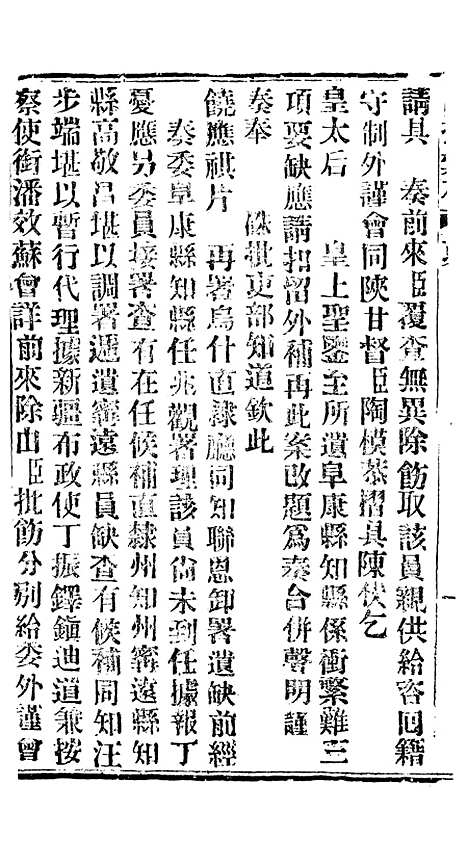 請具　奏前來臣覆查無異除飭取該員親供給咨回籍
守制外謹會同陝甘督臣陶模恭摺具陳伏乞
皇太后　皇上聖鑒至所遺阜康縣知縣係衝繁難三
項要缺應請扣留外補再此案改題爲奏合併聲明謹
奏奉　硃批吏部知道欽此
饒應祺片　再署烏什直隸廳同知聯恩卸署遺缺前經
奏委阜康縣知縣任兆觀署理該員尚未到任據報丁
憂應另委員接署查有在任候補直隸州知州甯遠縣知
縣高敬昌堪以調署遞遺甯遠縣員缺查有候補同知汪
步端堪以暫行代理據新疆布政使丁振鐸鎭迪道兼按
察使銜潘效蘇會詳前來除由臣批飭分別給委外謹會